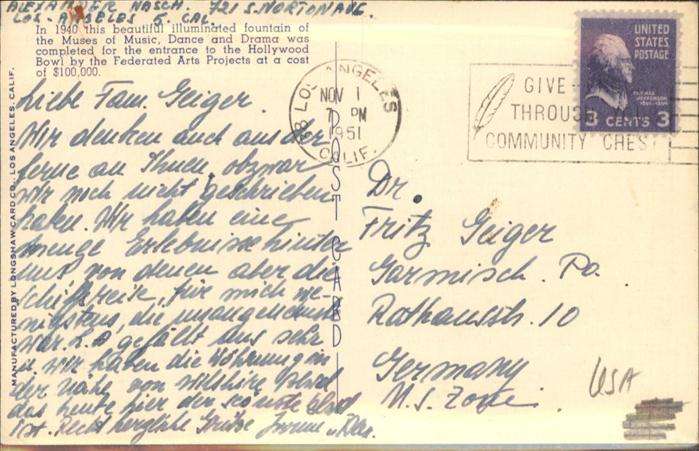 ALEXANDER NASCH. 721 S. NORTON AVE.
LOS-ANGELES 5. CAL.
In 1940 this beautiful illuminated fountain of
the Muses of Music, Dance and Drama was
completed for the entrance to the Hollywood
Bowl by the Federated Arts Projects at a cost
of $100,000.
Liebe Fam. Geiger.
Wir denken auch aus der
ferne an Ihnen obzwar
wir noch nicht geschrieben
haben. Wir haben eine
menge Erlebnisse hinter
uns von denen aber die
Schiffsreise, für mich we-
nigstens, die unangenehmste
war. L.A. gefällt uns sehr
u. wir haben die Wohnung in
der Nähe von Wilshire
das heute hier der schönste
ist. Recht herzliche Grüße
MANUFACTURED BY LONGSHAW CARD CO., LOS ANGELES, CALIF.
POST CARD
LOS ANGELES
NOV 1
7 PM
1951
CALIF.
GIVE
THROUGH
COMMUNITY CHEST
UNITED
STATES
POSTAGE
3 CENTS 3
Dr.
Fritz Geiger
Garmisch. Pa.
Rathausstr. 10
Germany
U.S. Zone.
USA